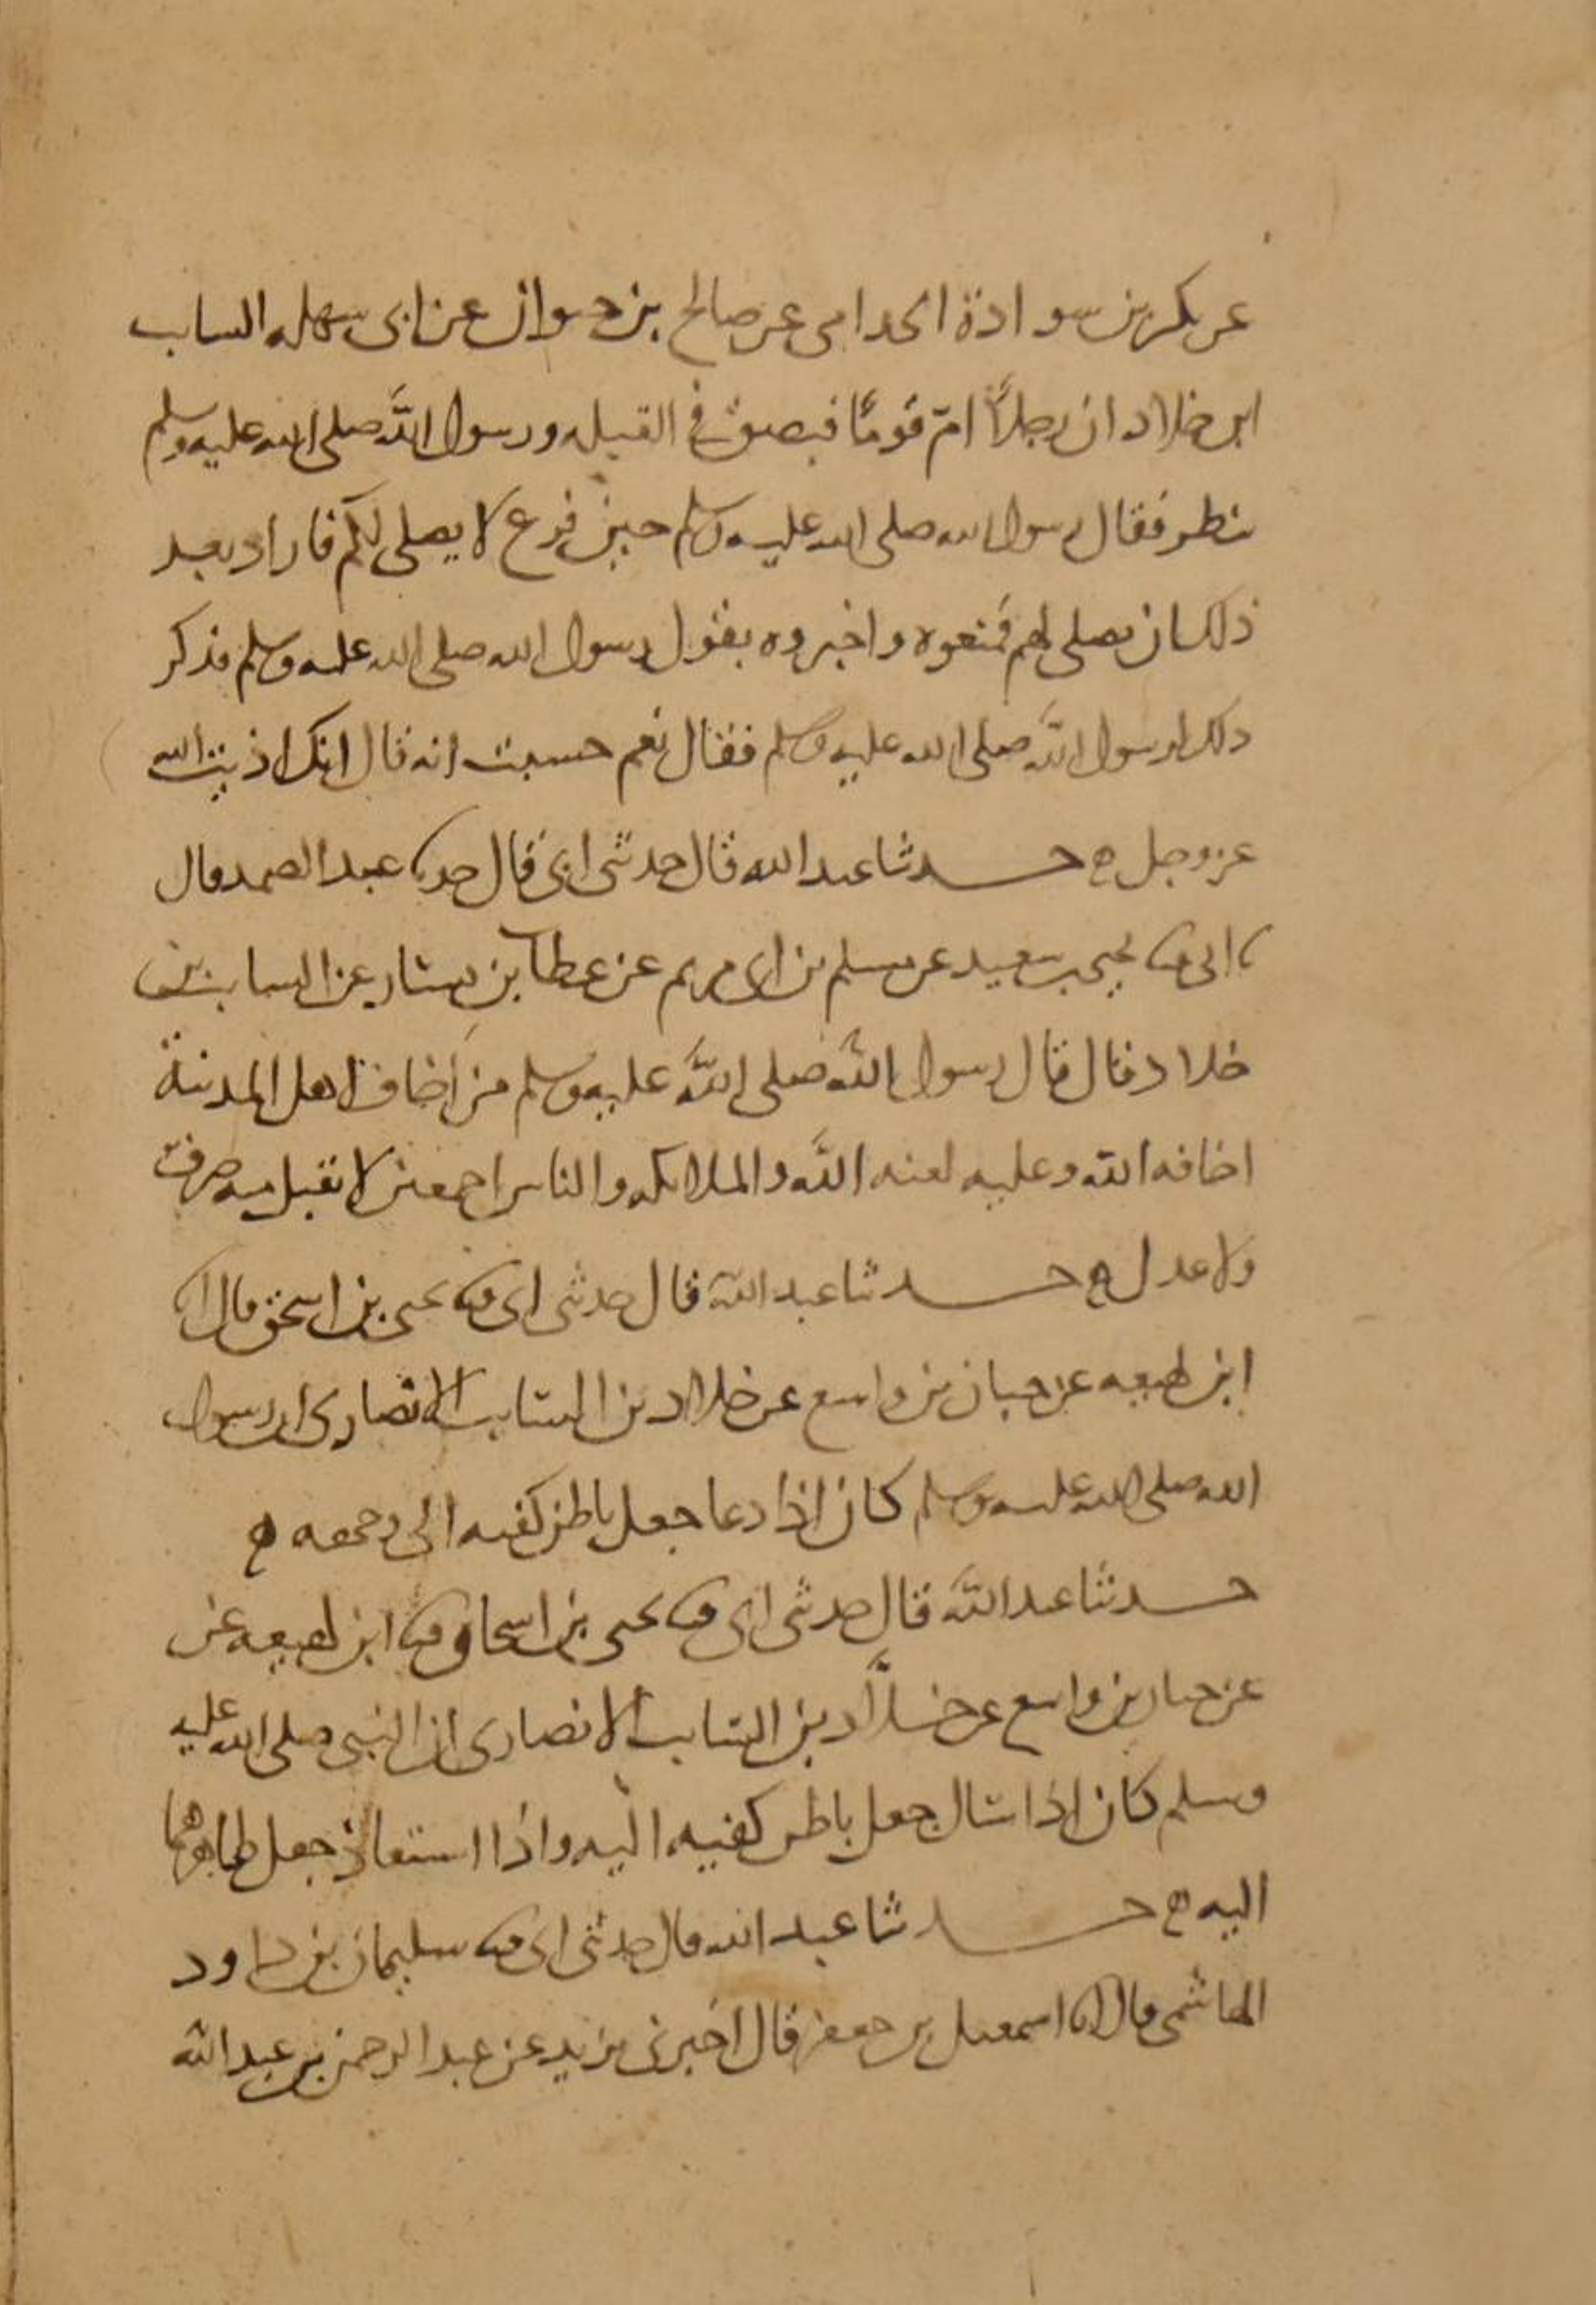 عن بكر بن سوادة الجذامى عن صالح بن حيوان عن ابى سهله الساب
ابن خلاد ان رجلاً امّ قومًا فبصق فى القبله ورسول الله صلى الله عليه وسلم
ينظر فقال رسول الله صلى الله عليه وسلم حين فرغ لا يصلى لكم فاراد بعد
ذلك ان يصلى لهم فمنعوه واخبروه بقول رسول الله صلى الله عليه وسلم فذكر
ذلك لرسول الله صلى الله عليه وسلم فقال نعم حسبت انه قال انك اذيت الله
عز وجل ه حدثنا عبد الله قال حدثنى ابى قال حدثنا عبد الصمد قال
ثنا ابى ثنا يحيى بن سعيد عن مسلم بن ابى مريم عن عطا بن يسار عن الساب بن
خلاد قال قال رسول الله صلى الله عليه وسلم من اخاف اهل المدينة
اخافه الله وعليه لعنه الله والملائكه والناس اجمعين لا يقبل منه صرف
ولا عدل ه حدثنا عبد الله قال حدثنى ابى ثنا يحيى بن اسحق قال انا
ابن لهيعه عن حبان بن واسع عن خلاد بن السايب الانصارى ان رسول
الله صلى الله عليه وسلم كان اذا دعا جعل باطن كفيه الى وجهه ه
حدثنا عبد الله قال حدثنى ابى ثنا يحيى بن اسحاق ثنا ابن لهيعه عن
عن حبان بن واسع عن خلاّد بن السايب الانصارى ان النبى صلى الله عليه
وسلم كان اذا سال جعل باطن كفيه اليه واذا استعاذ جعل ظاهرهما
اليه ه حدثنا عبد الله قال حدثنى ابى ثنا سليمان بن داود
الهاشمى قال انا اسمعيل بن جعفر قال اخبرنى يزيد عن عبد الرحمن بن عبد الله